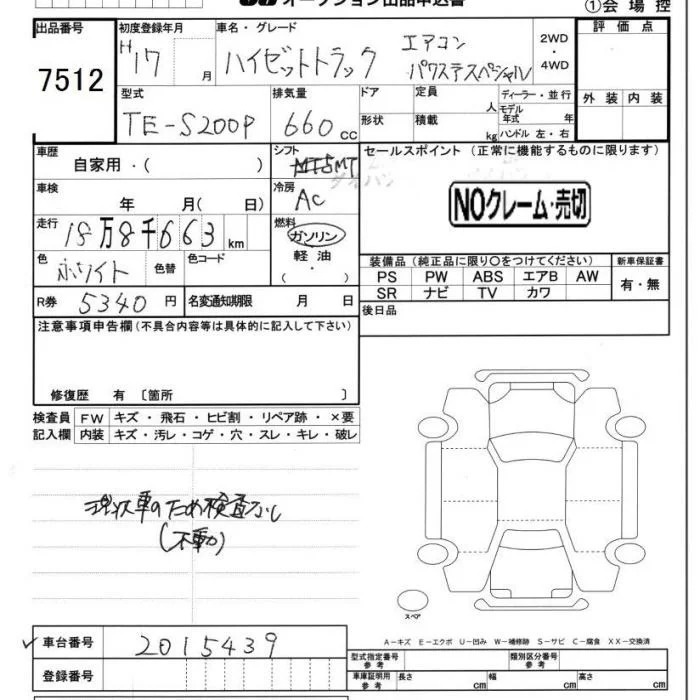 オークション出品申込書
①会場控
出品番号
7512
初度登録年月
H17 月
車名・グレード
ハイゼットトラック
エアコン
パワステスペシャル
2WD
・
4WD
評価点
外装 内装
型式
TE-S200P
排気量
660cc
ドア
形状
定員
人
積載
kg
ディーラー・並行
モデル年式 年
ハンドル 左・右
車歴
自家用・( )
シフト
5MT
セールスポイント (正常に機能するものに限ります)
NOクレーム・売切
車検
年 月( 日)
冷房
AC
走行
18万8千663km
燃料
ガソリン
軽油
・
( )
色
ホワイト
色替
色コード
装備品 (純正品に限り○をつけてください)
PS PW ABS エアB AW
SR ナビ TV カワ
新車保証書
有・無
R券 5340円
名変通知期限 月 日
後日品
注意事項申告欄(不具合内容等は具体的に記入して下さい)
修復歴 有 〔箇所 〕
検査員記入欄
FW キズ・飛石・ヒビ割・リペア跡・×要
内装 キズ・汚レ・コゲ・穴・スレ・キレ・破レ
現状車のため検査なし
(不動)
スペア
A-キズ E-エクボ U-凹み W-補修跡 S-サビ C-腐食 XX-交換済
車台番号
2015439
登録番号
型式指定番号
参考
類別区分番号
参考
車庫証明用
参考
長さ cm
幅 cm
高さ cm